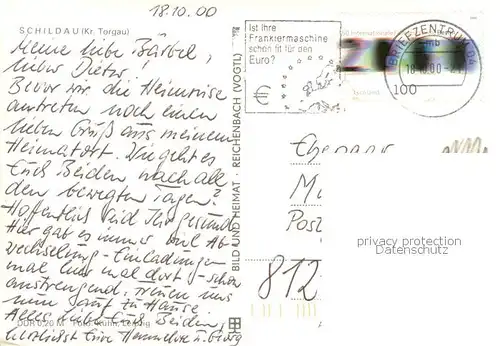 18.10.00
SCHILDAU (Kr. Torgau)
Meine liebe Bärbel,
lieber Dieter!
Bevor wir die Heimreise
antreten noch einen
lieben Gruß aus meinem
Heimatort. Wie geht es
Euch Beiden nach all
den bewegten Tagen?
Hoffentlich seid Ihr gesund.
Hier gab es immer viel Ab-
wechselung - Einladungen
mal hier mal dort, - schon
anstrengend. Freuen uns
nun sanft zu Hause
Alles liebe Euch Beiden,
herzlichst Eure Hannelore u. Georg
DDR 0,20 M Leipzig
BILD UND HEIMAT · REICHENBACH (VOGTL)
Ist Ihre
Frankiermaschine
schon fit für den
Euro?
€
BRIEFZENTRUM 04
mb
18.10.00-21
100
Ehepaar
Post
812
privacy protection
Datenschutz